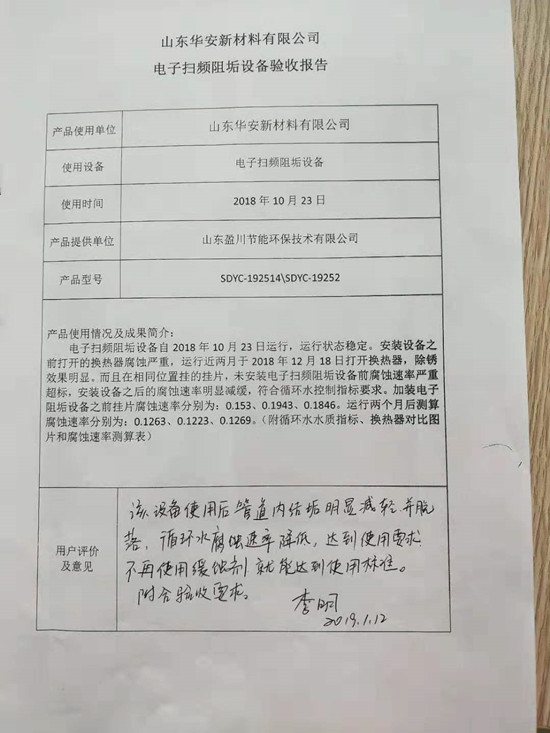 山东华安新材料有限公司
电子扫频阻垢设备验收报告
产品使用单位 山东华安新材料有限公司
使用设备 电子扫频阻垢设备
使用时间 2018 年 10 月 23 日
产品提供单位 山东盈川节能环保技术有限公司
产品型号 SDYC-192514\SDYC-19252
产品使用情况及成果简介：
电子扫频阻垢设备自 2018 年 10 月 23 日运行，运行状态稳定。安装设备之
前打开的换热器腐蚀严重，运行近两月于 2018 年 12 月 18 日打开换热器，除锈
效果明显。而且在相同位置挂的挂片，未安装电子扫频阻垢设备前腐蚀速率严重
超标，安装设备之后的腐蚀速率明显减缓，符合循环水控制指标要求。加装电子
阻垢设备之前挂片腐蚀速率分别为：0.153、0.1943、0.1846。运行两个月后测算
腐蚀速率分别为：0.1263、0.1223、0.1269。（附循环水水质指标、换热器对比图
片和腐蚀速率测算表）
用户评价
及意见
该设备使用后管道内结垢明显减轻并脱
落，循环水腐蚀速率降低，达到使用要求
不再使用缓蚀剂就能达到使用标准。
附合验收要求。
李明
2019.1.12